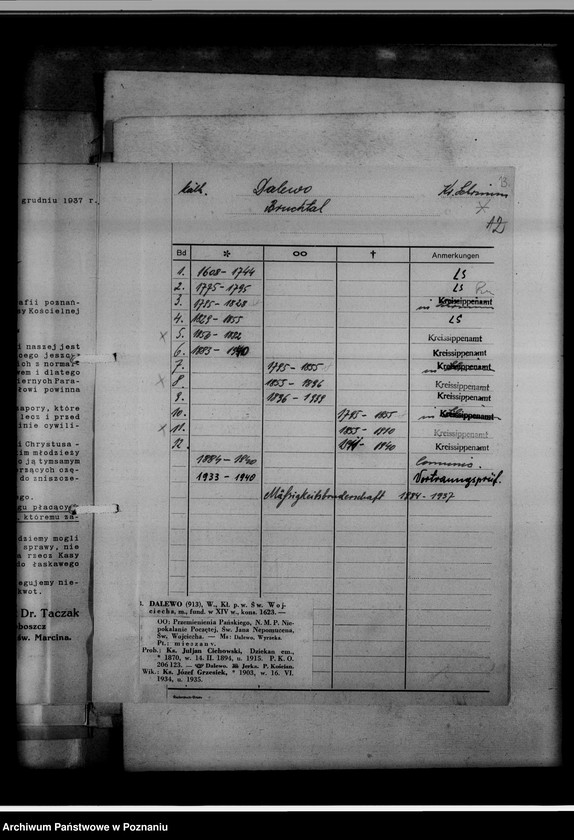 grudniu 1937 r.
afii poznań-
sy Kościelnej
i naszej jest
cego jeszcze
ich z normal-
wem i dlatego
ziernych Para-
łowi powinna
zapory, które
lecz i przed
dnie cywili-
i Chrystusa -
im młodzieży
o ją tymsamym
rzących czę-
do zniszcze-
ego.
gu płacący
, któremu za-
dziemy mogli
sprawy, nie
a rzecz Kasy
do łaskawego
egujemy nie-
kwot.
Dr. Taczak
oboszcz
św. Marcina.
kath. Dalewo Kr. Schrimm
Bruchtal
Bd * oo † Anmerkungen
1. 1608 - 1744 LS
2. 1775 - 1795 LS
3. 1795 - 1828 in Kreissippenamt
4. 1829 - 1855 LS
x 5. 1856 - 1882 Kreissippenamt
6. 1883 - 1940 Kreissippenamt
7. 1795 - 1855 in Kreissippenamt
x 8. 1855 - 1896 Kreissippenamt
9. 1896 - 1939 Kreissippenamt
10. 1795 - 1855 in Kreissippenamt
x 11. 1855 - 1910 Kreissippenamt
12. 1911 - 1940 Kreissippenamt
1884 - 1940 Communic.
1933 - 1940 Vortrauungsprüf.
Mäßigkeitsbruderschaft 1884 - 1937
1. DALEWO (913), W., Kł. p. w. Św. Woj-
ciecha, m., fund. w XIV w., kons. 1623. —
OO: Przemienienia Pańskiego, N. M. P. Nie-
pokalanie Poczętej, Św. Jana Nepomucena,
Św. Wojciecha. — Ma: Dalewo, Wyrzeka.
Pt.: mieszany.
Prob.: Ks. Juljan Cichowski, Dziekan em.,
* 1870, w. 14. II. 1894, u. 1915. P. K. O.
206 123. — Dalewo. Jerka. P. Kościan.
Wik.: Ks. Józef Grzesiek, * 1903, w. 16. VI.
1934, u. 1935.
Archiwum Państwowe w Poznaniu